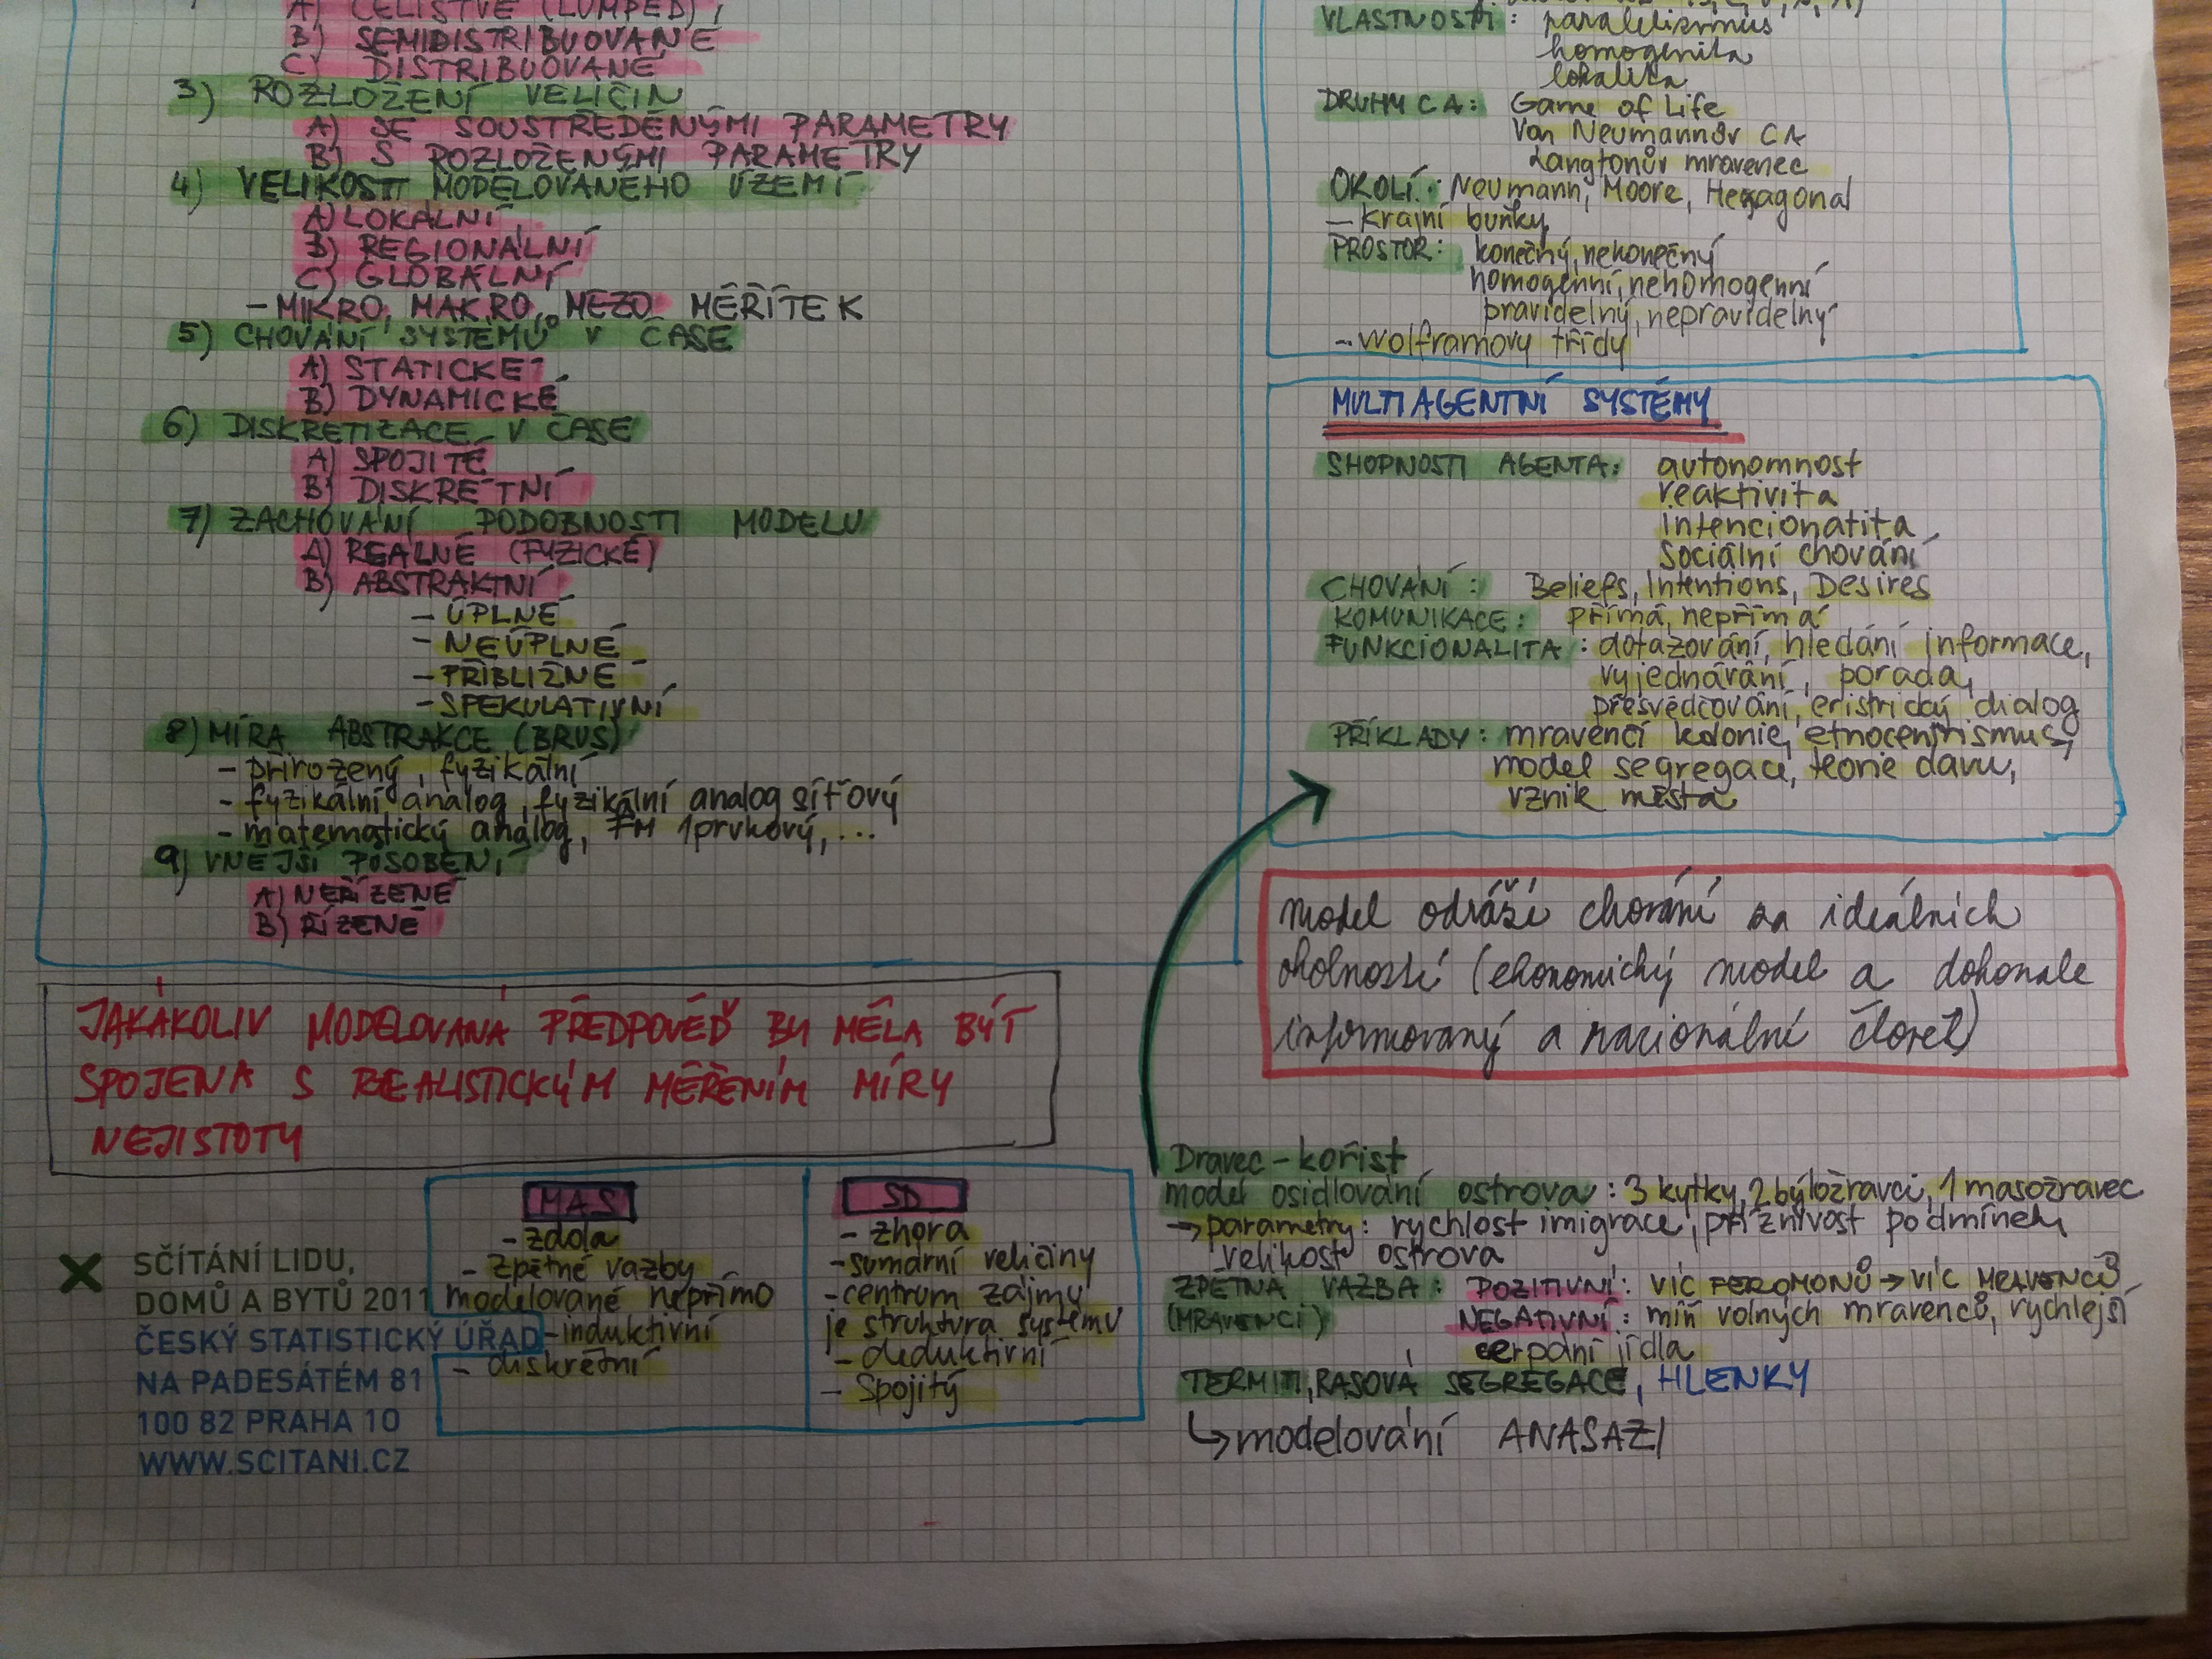 A) CELISTVÉ (LUMPED),
B) SEMIDISTRIBUOVANÉ
C) DISTRIBUOVANÉ
3) ROZLOŽENÍ VELIČIN
A) SE SOUSTŘEDĚNÝMI PARAMETRY
B) S ROZLOŽENÝMI PARAMETRY
4) VELIKOST MODELOVANÉHO ÚZEMÍ
A) LOKÁLNÍ
B) REGIONÁLNÍ
C) GLOBÁLNÍ
- MIKRO, MAKRO, MEZO MĚŘÍTEK
5) CHOVÁNÍ SYSTÉMU V ČASE
A) STATICKÉ
B) DYNAMICKÉ
6) DISKRETIZACE V ČASE
A) SPOJITÉ
B) DISKRÉTNÍ
7) ZACHOVÁNÍ PODOBNOSTI MODELU
A) REÁLNÉ (FYZICKÉ)
B) ABSTRAKTNÍ
- ÚPLNÉ
- NEÚPLNÉ -
- PŘIBLIŽNÉ
- SPEKULATIVNÍ
8) MÍRA ABSTRAKCE (BRUS)
- přirozený, fyzikální
- fyzikální analog, fyzikální analog síťový
- matematický analog, FM prvkový, ...
9) VNĚJŠÍ PŮSOBENÍ
A) NEŘÍZENÉ
B) ŘÍZENÉ
JAKÁKOLIV MODELOVANÁ PŘEDPOVĚĎ BY MĚLA BÝT
SPOJENA S REALISTICKÝM MĚŘENÍM MÍRY
NEJISTOTY
MAS
- zdola
- zpětné vazby
modelované nepřímo
- induktivní
- diskrétní
SD
- zhora
- sumární veličiny
- centrum zájmu
je struktura systému
- deduktivní
- Spojitý
SČÍTÁNÍ LIDU,
DOMŮ A BYTŮ 2011
ČESKÝ STATISTICKÝ ÚŘAD
NA PADESÁTÉM 81
100 82 PRAHA 10
WWW.SCITANI.CZ
VLASTNOSTI: paralelismus
homogenita
lokalita
DRUHY CA: Game of Life
Von Neumannův CA
Langtonův mravenec
OKOLÍ: Neumann, Moore, Hexagonal
- krajní buňky
PROSTOR: konečný, nekonečný
homogenní, nehomogenní
pravidelný, nepravidelný
- wolframovy třídy
MULTIAGENTNÍ SYSTÉMY
SHOPNOSTI AGENTA: autonomnost
reaktivita
intencionalita
Sociální chování
CHOVÁNÍ: Beliefs, Intentions, Desires
KOMUNIKACE: přímá, nepřímá
FUNKCIONALITA: dotazování, hledání informace,
vyjednávání, porada,
přesvědčování, eristický dialog
PŘÍKLADY: mravenčí kolonie, etnocentrismus,
model segregace, teorie davu,
vznik města
Model odráží chování za ideálních
okolností (ekonomický model a dokonale
informovaný a racionální člověk)
Dravec - kořist
model osidlování ostrovů: 3 kytky, 2 býložravci, 1 masožravec
→ parametry: rychlost imigrace, příznivost podmínek
velikost ostrova
ZPĚTNÁ VAZBA: POZITIVNÍ: víc FEROMONŮ → víc MRAVENCŮ
(MRAVENCI) NEGATIVNÍ: míň volných mravenců, rychlejší
čerpání jídla
TERMITI, RASOVÁ SEGREGACE, HLENKY
↳ modelování ANASAZI